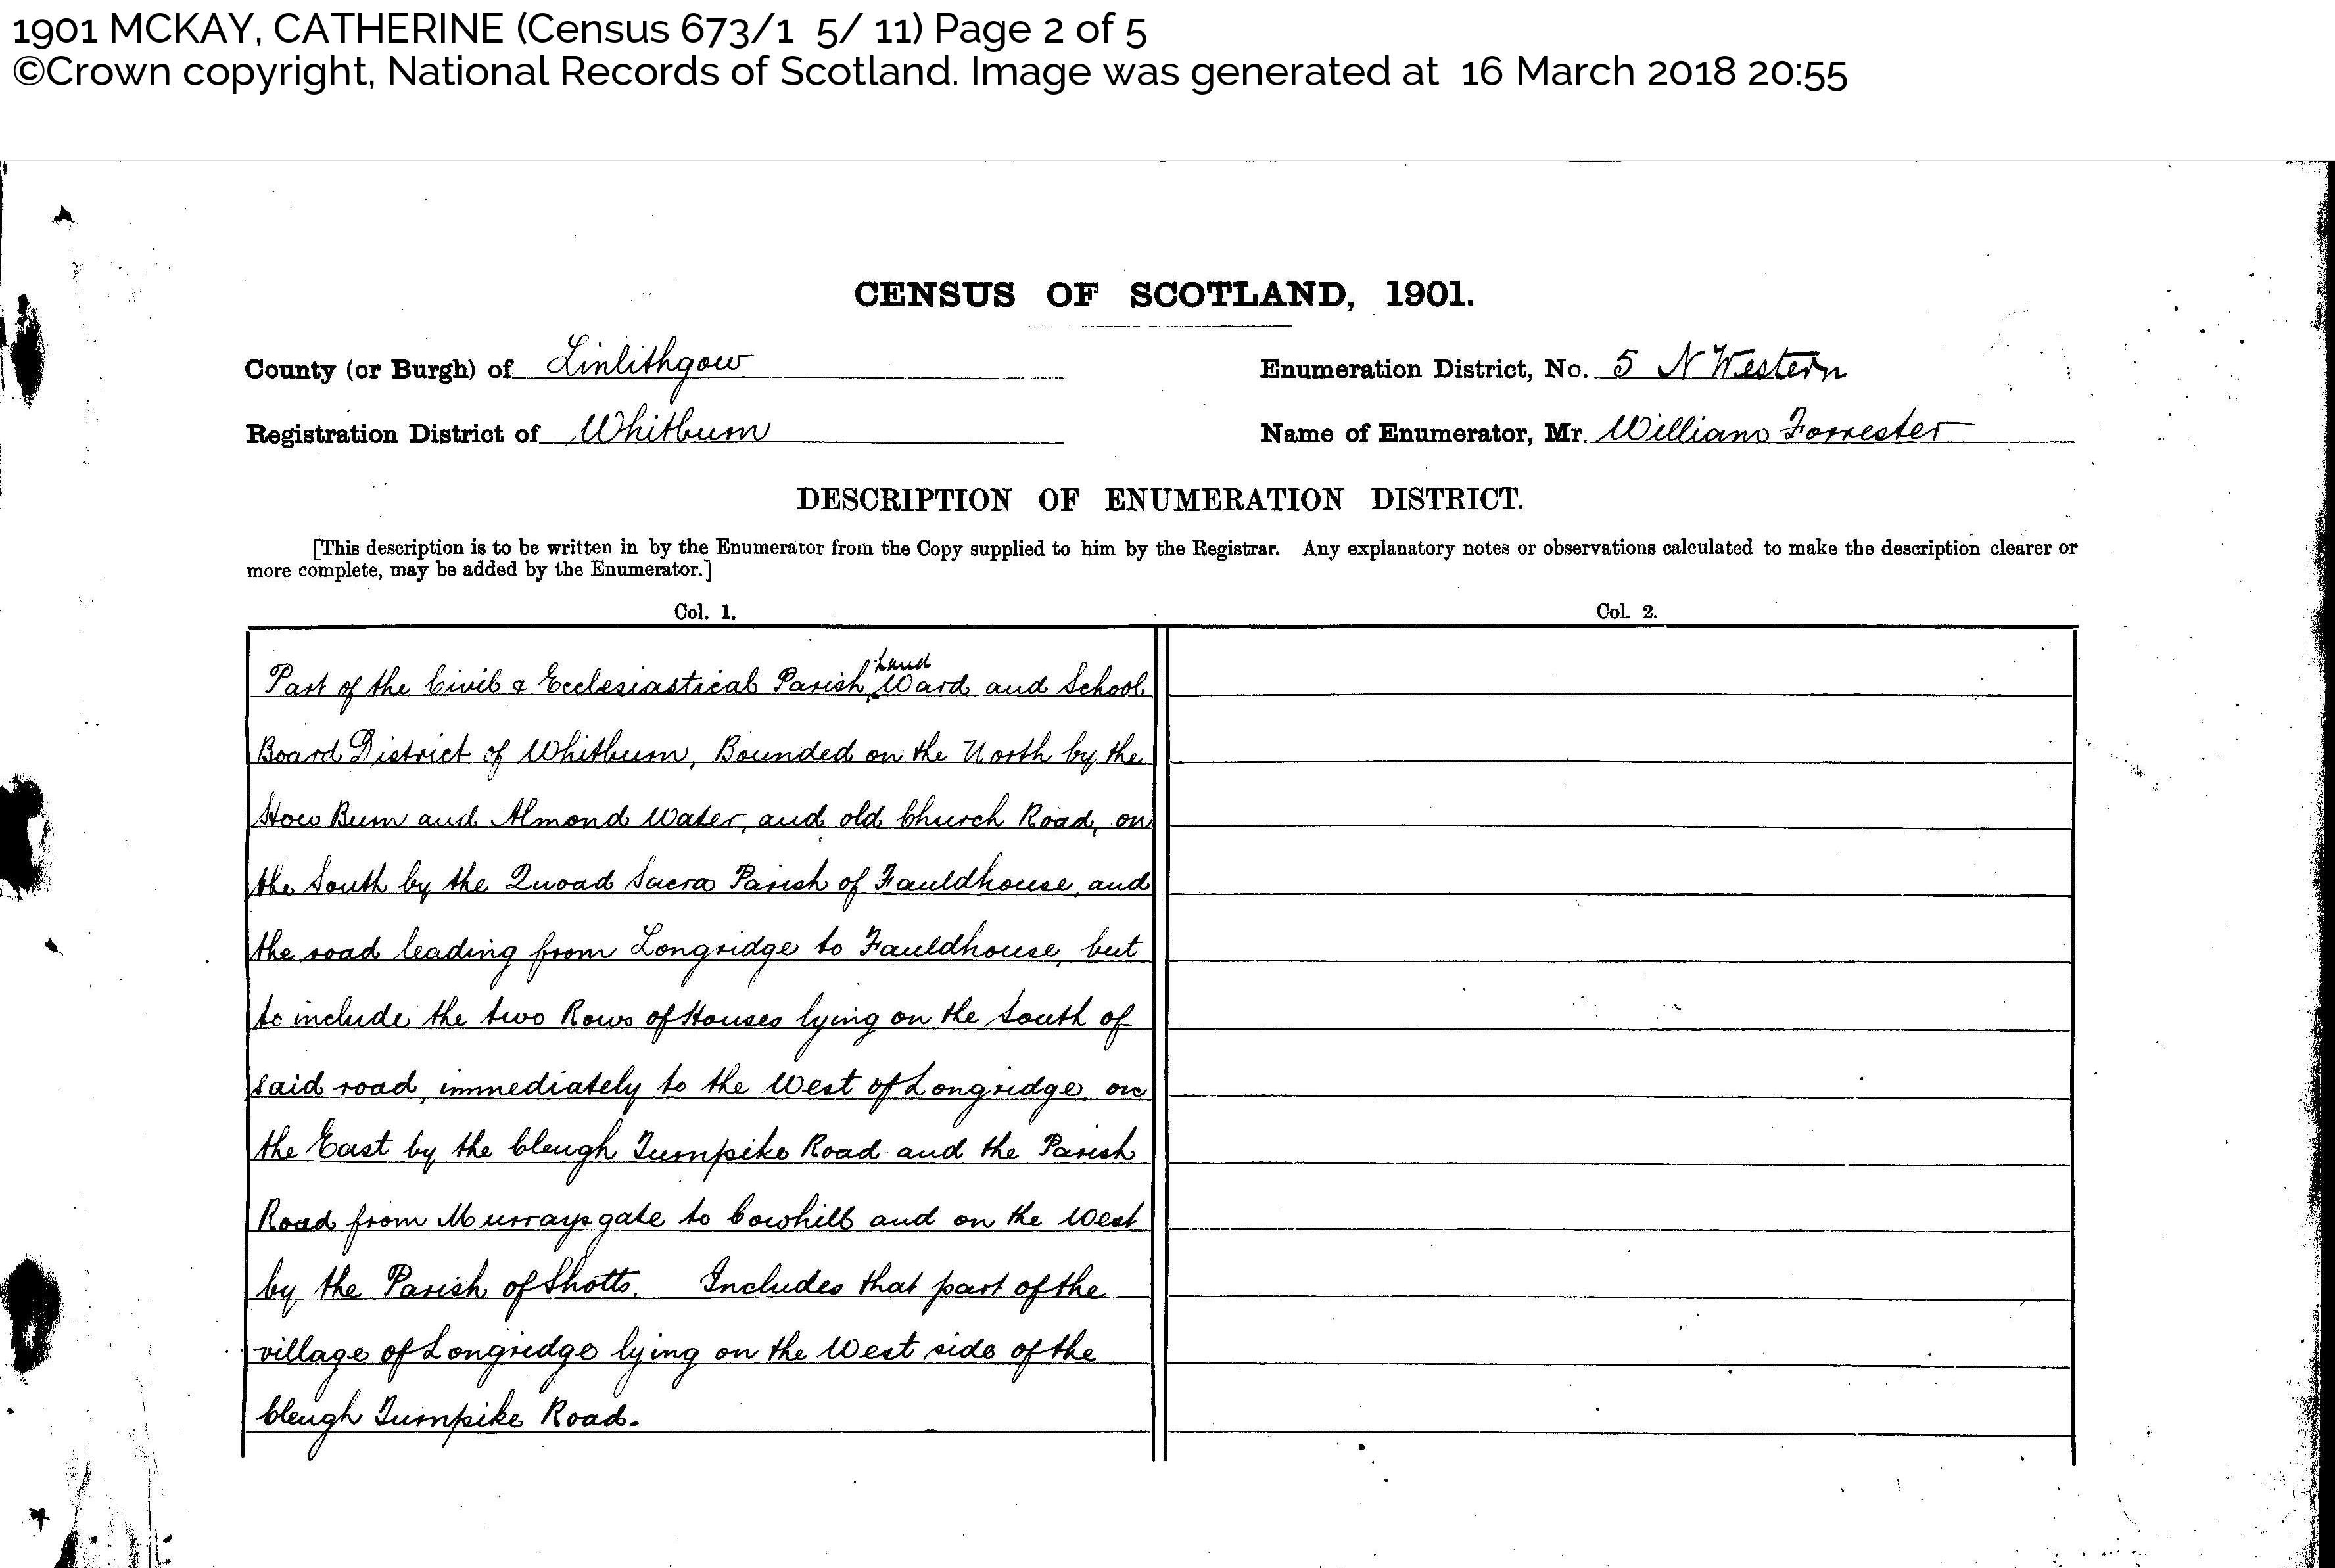 1901 MCKAY, CATHERINE (Census 673/1 5/ 11) Page 2 of 5
©Crown copyright, National Records of Scotland. Image was generated at 16 March 2018 20:55
CENSUS OF SCOTLAND, 1901.
County (or Burgh) of Linlithgow
Enumeration District, No. 5 N Western
Registration District of Whitburn
Name of Enumerator, Mr. William Forrester
DESCRIPTION OF ENUMERATION DISTRICT.
[This description is to be written in by the Enumerator from the Copy supplied to him by the Registrar. Any explanatory notes or observations calculated to make the description clearer or
more complete, may be added by the Enumerator.]
Col. 1.
Col. 2.
Part of the Civil & Ecclesiastical Parish, Land Ward and School
Board District of Whitburn, Bounded on the North by the
How Burn and Almond Water, and old Church Road, on
the South by the Quoad Sacra Parish of Fauldhouse, and
the road leading from Longridge to Fauldhouse, but
to include the two Rows of Houses lying on the South of
said road, immediately to the West of Longridge, on
the East by the Cleugh Turnpike Road and the Parish
Road from Murraysgate to Cowhill and on the West
by the Parish of Shotts. Includes that part of the
village of Longridge lying on the West side of the
Cleugh Turnpike Road.